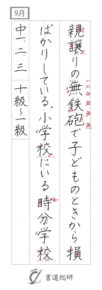 9月
親譲りの無鉄砲で子どものときから損
ばかりしている。小学校にいる時分学校
中二、三 十級〜一級
書道総研